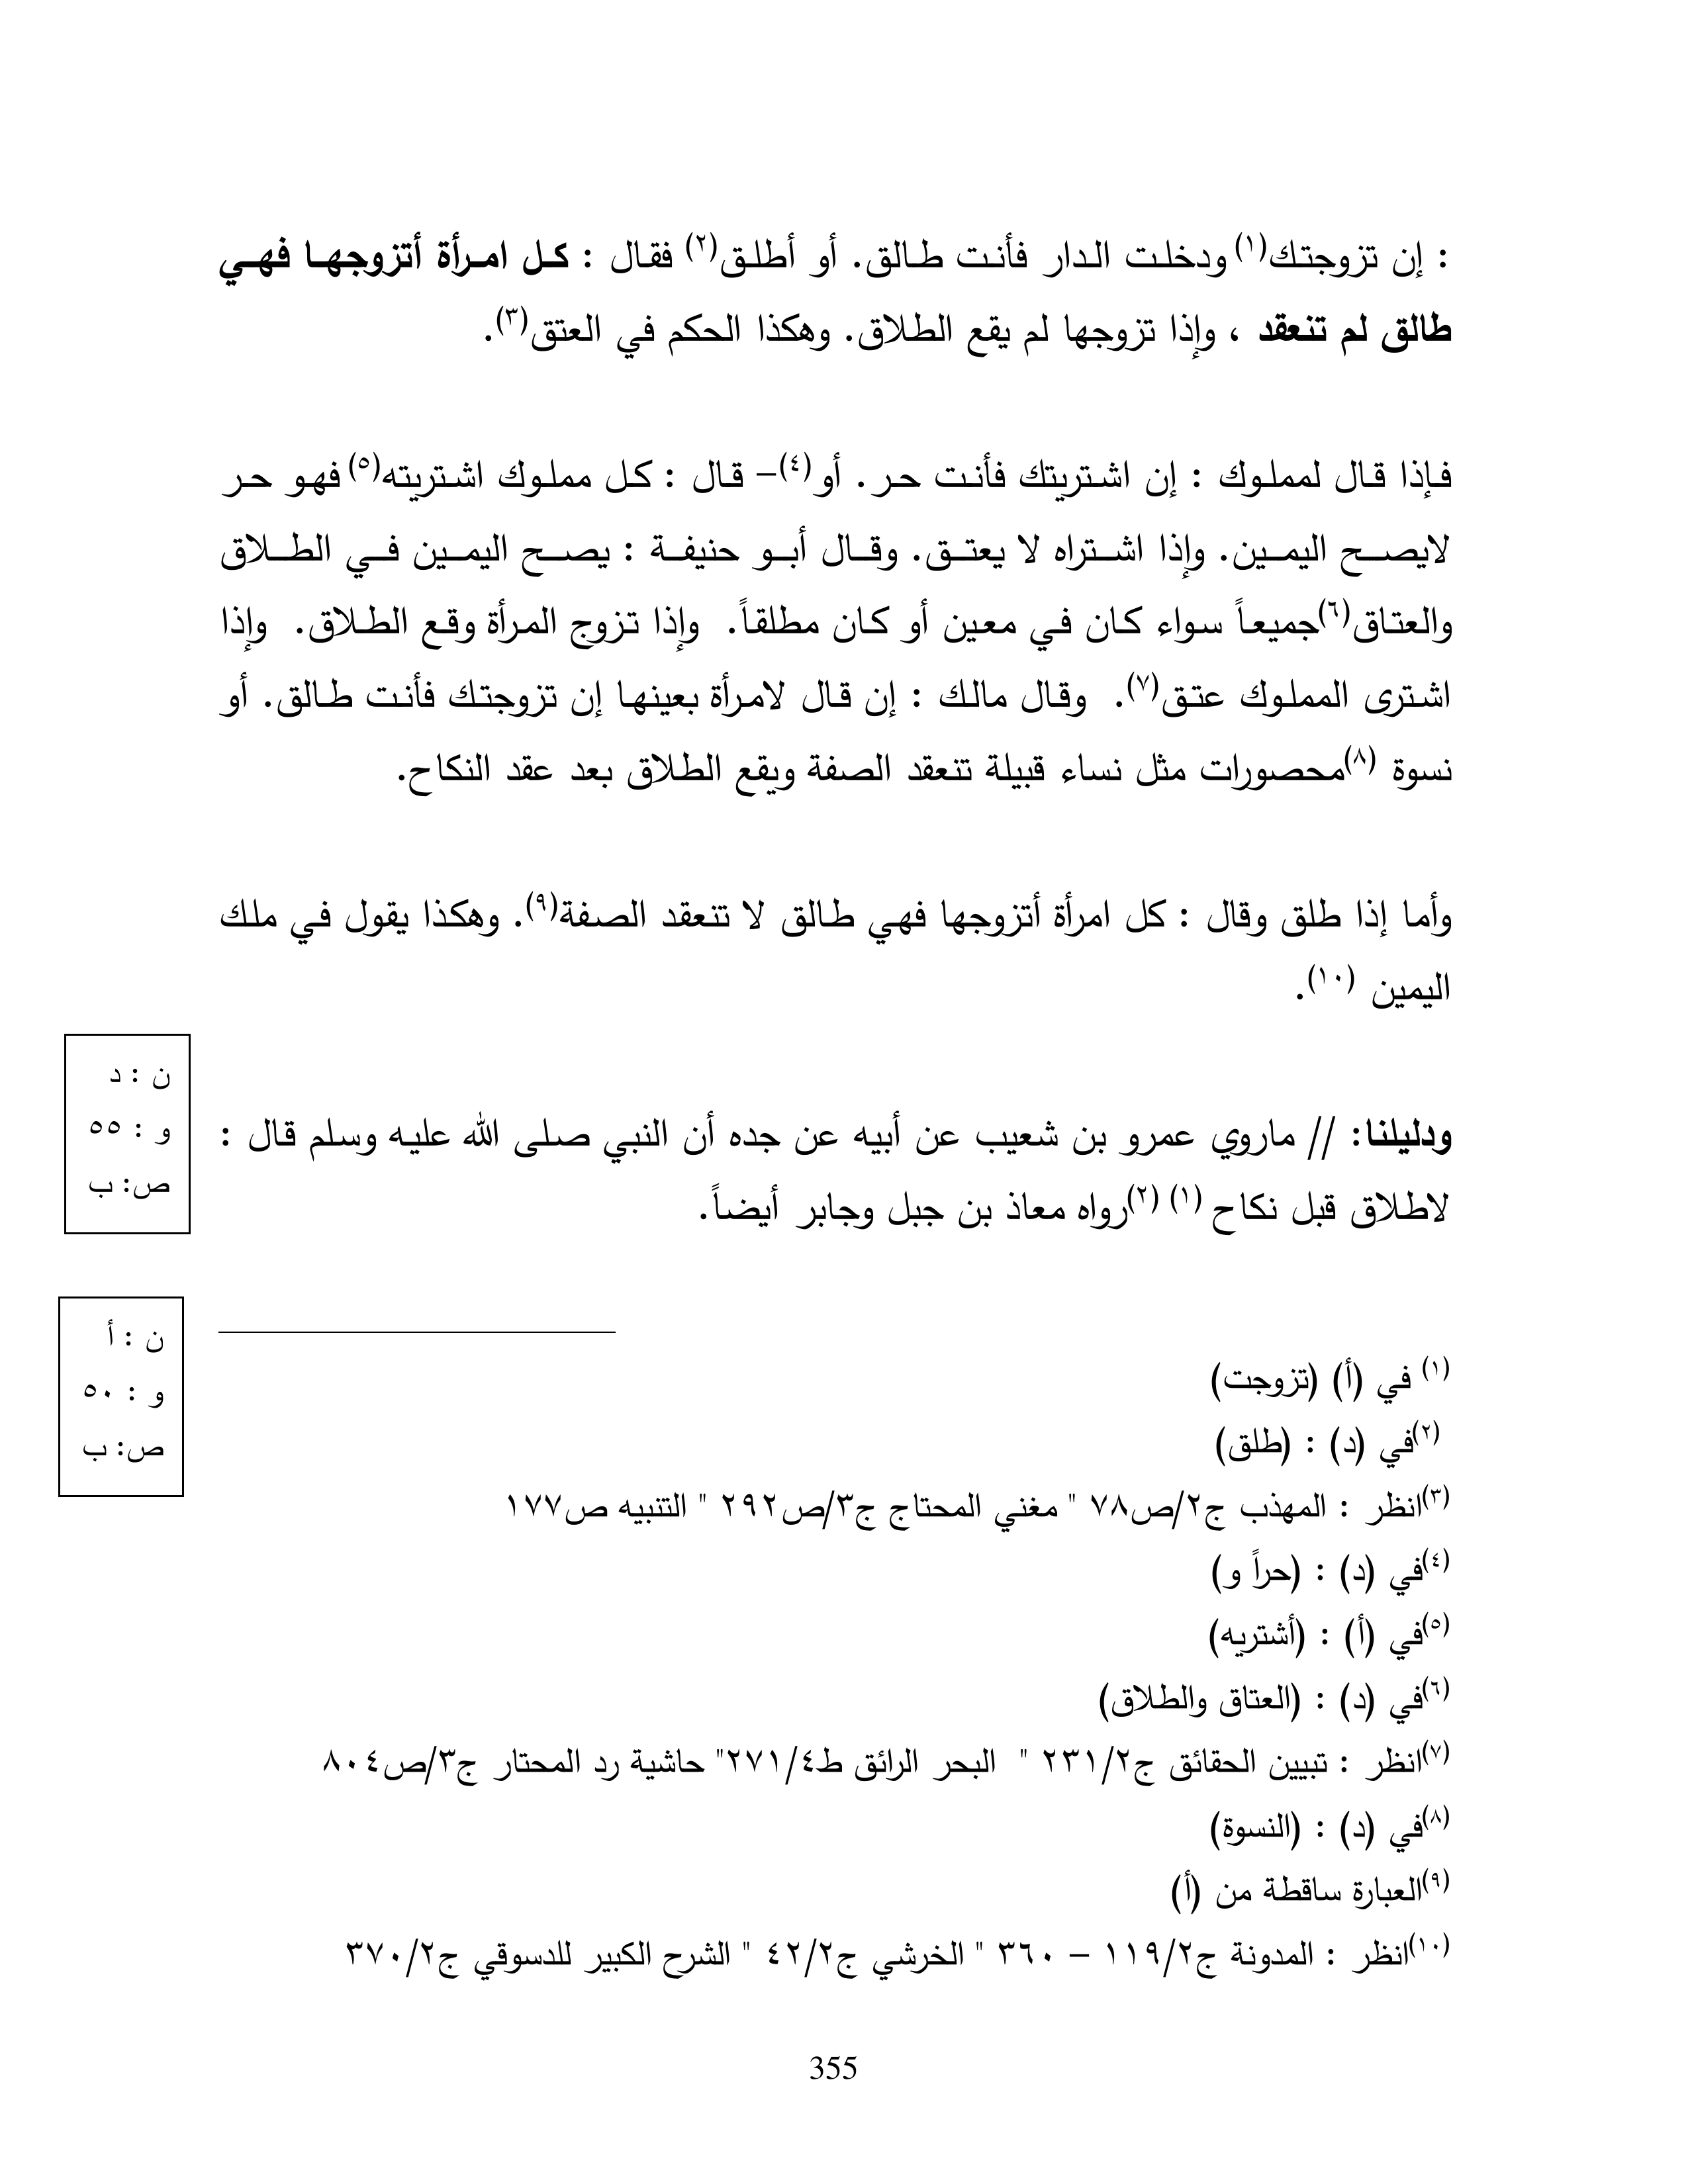 : إن تزوجتك(١) ودخلت الدار فأنت طالق. أو أطلق(٢) فقال : كل امرأة أتزوجها فهي
طالق لم تنعقد ، وإذا تزوجها لم يقع الطلاق. وهكذا الحكم في العتق(٣).
فإذا قال لمملوك : إن اشتريتك فأنت حر. أو(٤)– قال : كل مملوك اشتريته(٥) فهو حر
لايصح اليمين. وإذا اشتراه لا يعتق. وقال أبو حنيفة : يصح اليمين في الطلاق
والعتاق(٦)جميعاً سواء كان في معين أو كان مطلقاً. وإذا تزوج المرأة وقع الطلاق. وإذا
اشترى المملوك عتق(٧). وقال مالك : إن قال لامرأة بعينها إن تزوجتك فأنت طالق. أو
نسوة (٨)محصورات مثل نساء قبيلة تنعقد الصفة ويقع الطلاق بعد عقد النكاح.
وأما إذا طلق وقال : كل امرأة أتزوجها فهي طالق لا تنعقد الصفة(٩). وهكذا يقول في ملك
اليمين (١٠).
ن : د
و : ٥٥
ص: ب
ودليلنا: // ماروي عمرو بن شعيب عن أبيه عن جده أن النبي صلى الله عليه وسلم قال :
لاطلاق قبل نكاح (١) (٢)رواه معاذ بن جبل وجابر أيضاً.
ن : أ
و : ٥٠
ص: ب
(١) في (أ) (تزوجت)
(٢)في (د) : (طلق)
(٣)انظر : المهذب ج٢/ص٧٨ " مغني المحتاج ج٣/ص٢٩٢ " التنبيه ص١٧٧
(٤)في (د) : (حراً و)
(٥)في (أ) : (أشتريه)
(٦)في (د) : (العتاق والطلاق)
(٧)انظر : تبيين الحقائق ج٢/٢٣١ " البحر الرائق ط٤/٢٧١" حاشية رد المحتار ج٣/ص٨٠٤
(٨)في (د) : (النسوة)
(٩)العبارة ساقطة من (أ)
(١٠)انظر : المدونة ج٢/١١٩ – ٣٦٠ " الخرشي ج٢/٤٢ " الشرح الكبير للدسوقي ج٢/٣٧٠
355